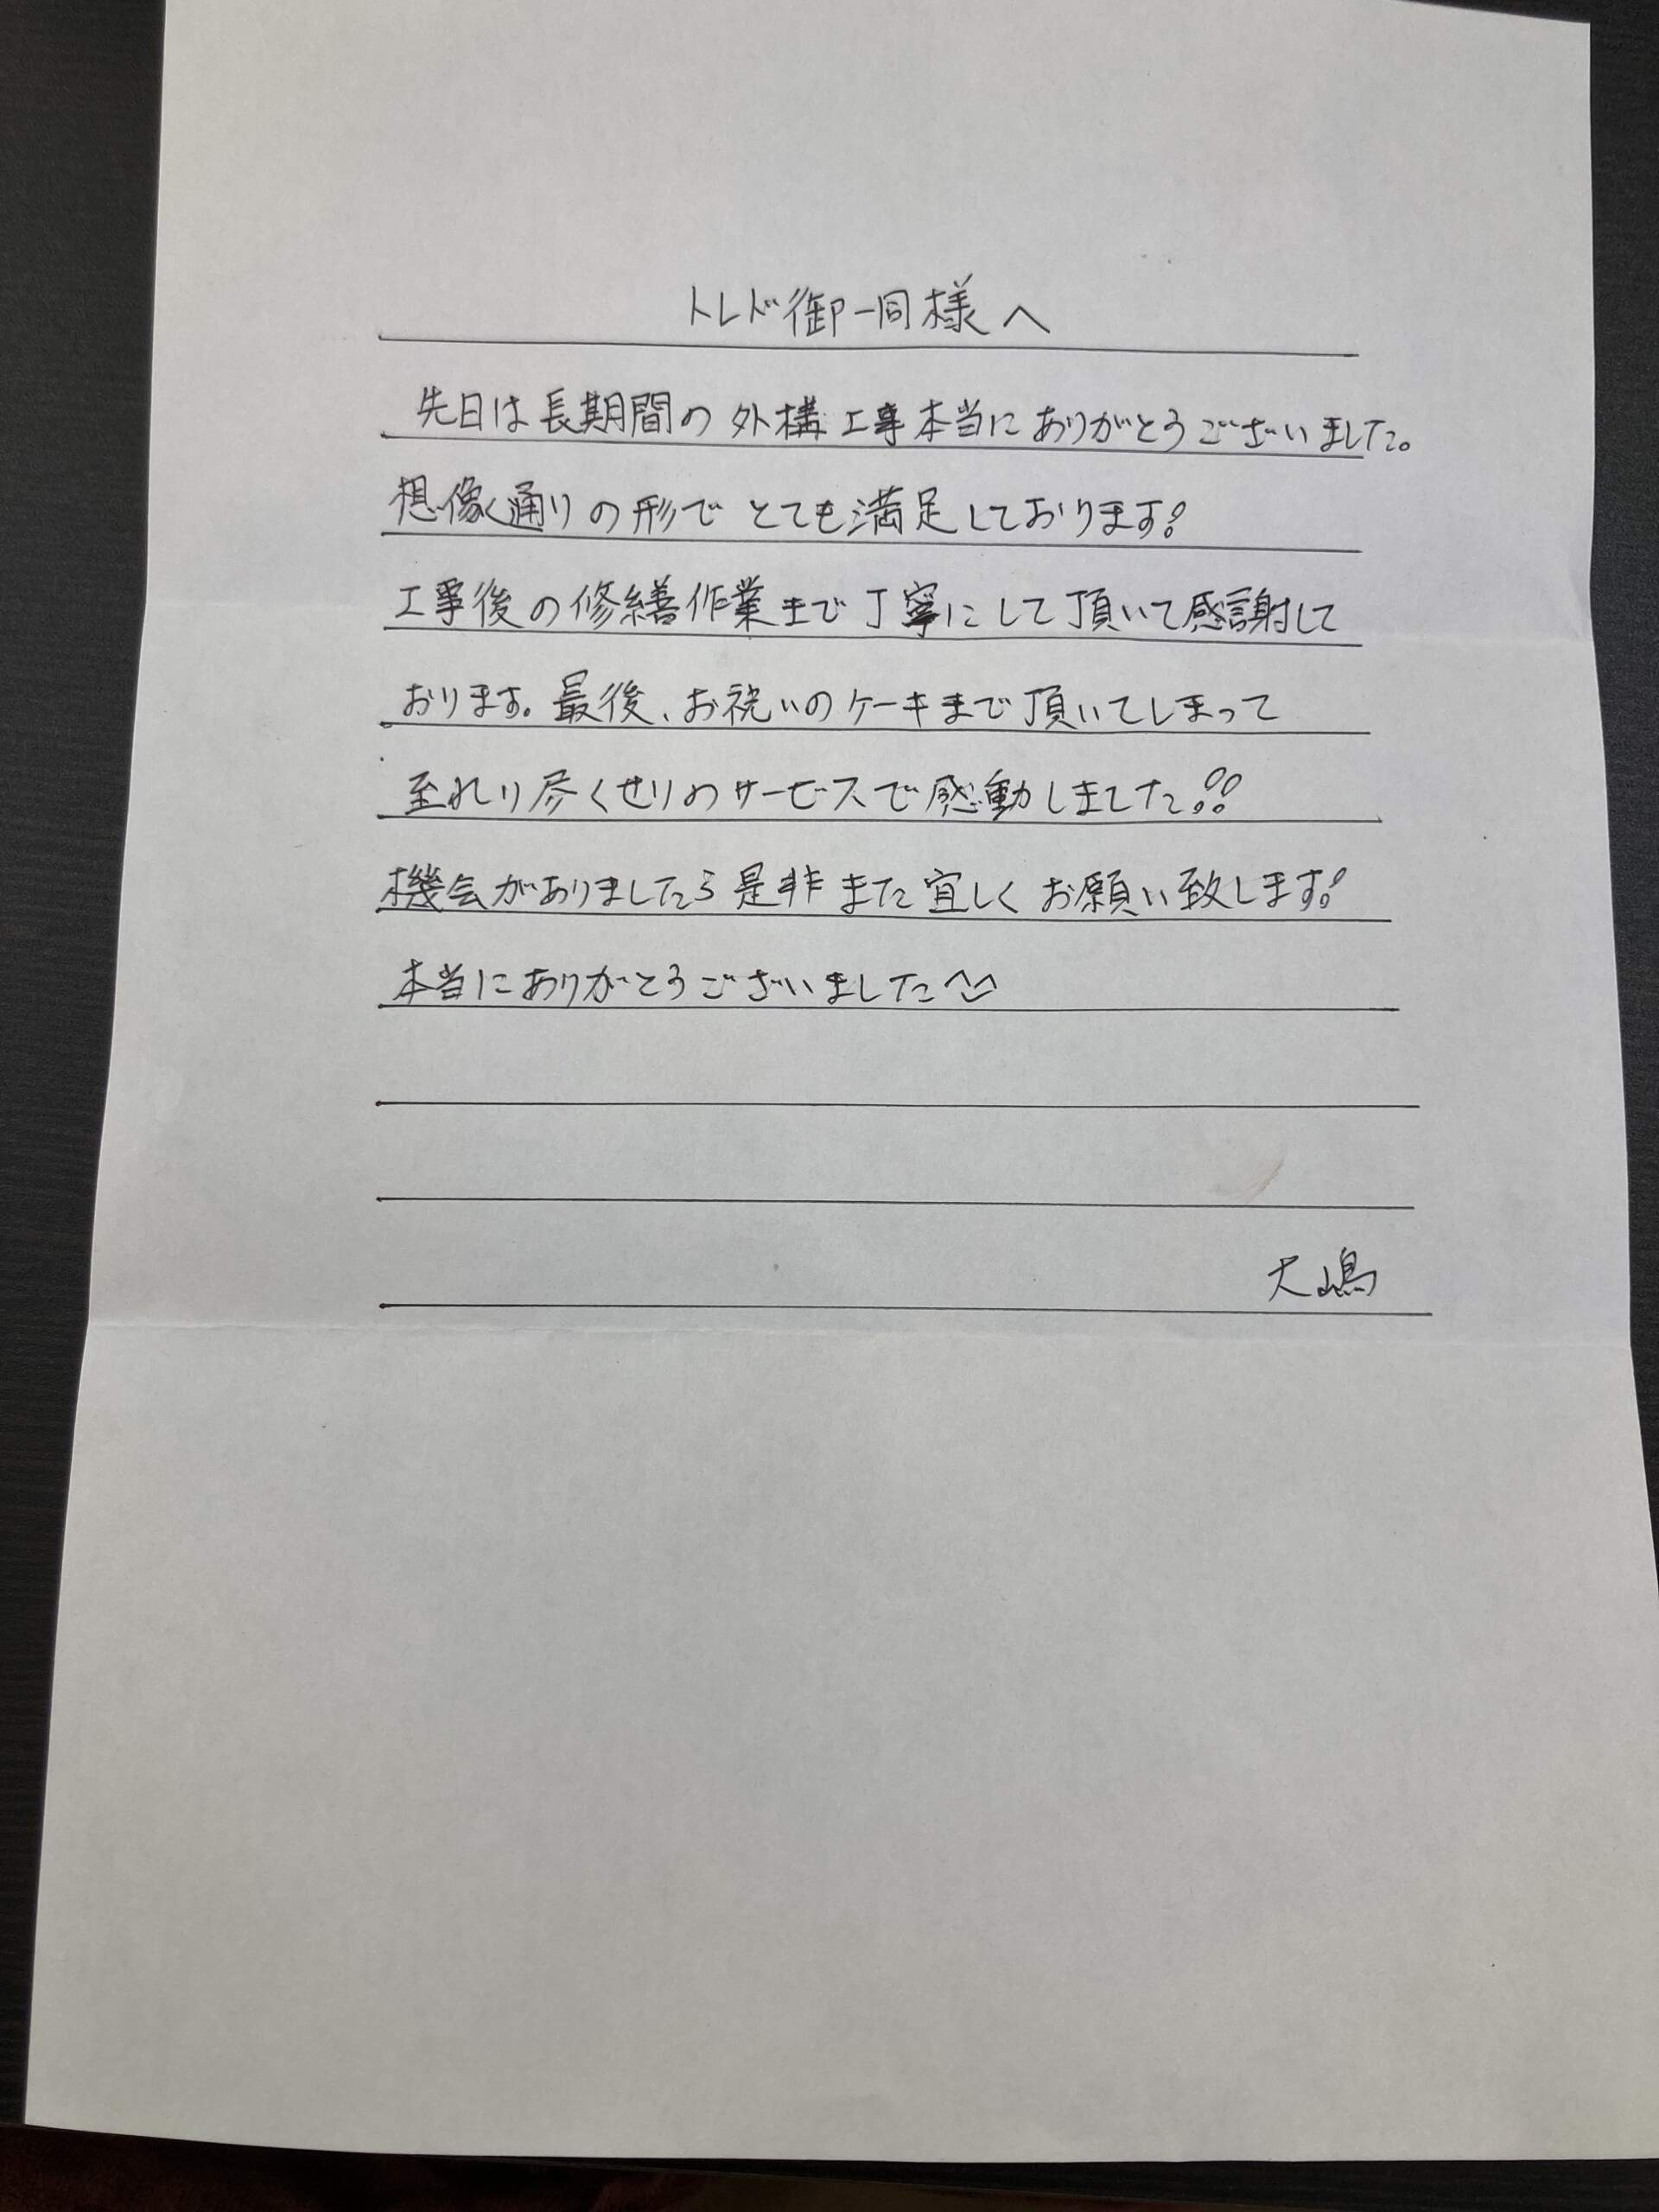 トレド御一同様へ
先日は長期間の外構工事本当にありがとうございました。
想像通りの形でとても満足しております!
工事後の修繕作業まで丁寧にして頂いて感謝して
おります。最後、お祝いのケーキまで頂いてしまって
至れり尽くせりのサービスで感動しました!!
機会がありましたら是非また宜しくお願い致します!
本当にありがとうございました^^
大嶋